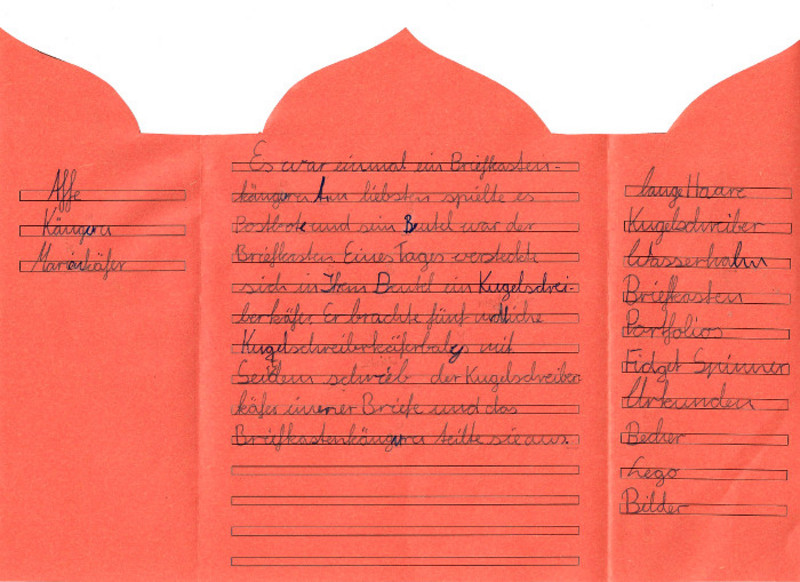 Affe
Känguru
Marienkäfer
Es war einmal ein Briefkasten-
känguru Am liebsten spielte es
Postbote und sein Beutel war der
Briefkasten. Eines Tages versteckte
sich in Ihem Beutel ein Kugelschrei-
berkäfer. Er brachte fünf nidliche
Kugelschreiberkäferbabys mit
Seitdem schrieb der Kugelschreiber
käfer immer Briefe und das
Briefkastenkänguru teilte sie aus.
lange Haare
Kugelschreiber
Wasserhahn
Briefkasten
Portfolios
Fidget Spinner
Urkunden
Becher
Lego
Bilder